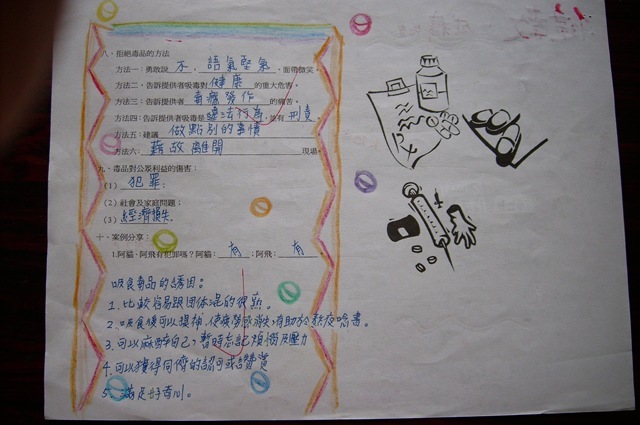 八、拒絕毒品的方法
方法一：勇敢說 不，語氣堅氣，面帶微笑。
方法二、告訴提供者吸毒對 健康 的重大危害。
方法三：告訴提供者 毒癮發作 的痛苦。
方法四：告訴提供者吸毒是 違法行為，並有 刑責
方法五：建議 做點別的事情
方法六： 藉故離開 現場。
九、毒品對公眾利益的傷害：
(1) 犯罪；
(2) 社會及家庭問題；
(3) 經濟損失.
十、案例分享：
1.阿貓、阿飛有犯罪嗎？阿貓： 有 ；阿飛： 有
吸食毒品的誘因。
1. 比較容易跟団体混的很熟。
2. 吸食後可以提神，使疲勞感消失，有助於熬夜唸書。
3. 可以麻醉自己，暫時忘記煩惱及壓力
4. 可以獲得同儕的認可或讚賞
5. 滿足好奇心。